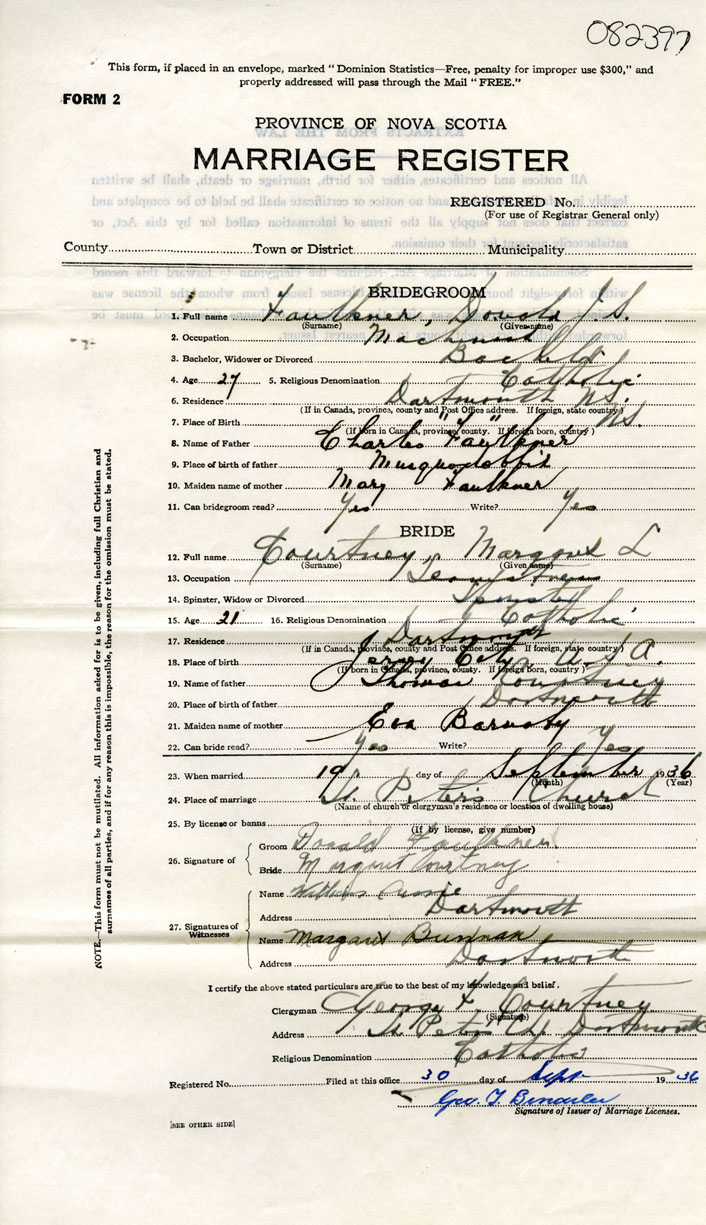 082397
This form, if placed in an envelope, marked "Dominion Statistics—Free, penalty for improper use $300," and
properly addressed will pass through the Mail "FREE."
FORM 2
PROVINCE OF NOVA SCOTIA
MARRIAGE REGISTER
REGISTERED No.
(For use of Registrar General only)
County Town or District Municipality
BRIDEGROOM
1. Full name Faulkner, Donald J. S.
(Surname) (Given name)
2. Occupation Machinist
3. Bachelor, Widower or Divorced
4. Age 27 5. Religious Denomination Catholic
6. Residence Dartmouth N.S.
(If in Canada, province, county and Post Office address. If foreign, state country)
7. Place of Birth " " N.S.
(If born in Canada, province, county. If foreign born, country)
8. Name of Father Charles Faulkner
9. Place of birth of father Musquodoboit
10. Maiden name of mother Mary Faulkner
11. Can bridegroom read? Yes Write? Yes
BRIDE
12. Full name Courtney, Margaret L
(Surname) (Given name)
13. Occupation
14. Spinster, Widow or Divorced Spinster
15. Age 21 16. Religious Denomination Catholic
17. Residence Dartmouth
(If in Canada, province, county and Post Office address. If foreign, state country)
18. Place of birth Jersey City, U.S.A.
(If born in Canada, province, county. If foreign born, country)
19. Name of father Thomas Courtney
20. Place of birth of father Dartmouth
21. Maiden name of mother Eva Barnaby
22. Can bride read? Yes Write? Yes
23. When married 19 day of September 1936
(Month) (Year)
24. Place of marriage St. Peter's Church
(Name of church or clergyman's residence or location of dwelling house)
25. By license or banns
(If by license, give number)
26. Signature of
Groom Donald Faulkner
Bride Margaret Courtney
27. Signatures of Witnesses
Name
Address Dartmouth
Name Margaret
Address Dartmouth
I certify the above stated particulars are true to the best of my knowledge and belief.
Clergyman George F. Courtney
(Signature)
Address St Peter's Ch. Dartmouth
Religious Denomination Catholic
Registered No. Filed at this office 30 day of Sept 1936
Geo. T.
Signature of Issuer of Marriage Licenses.
[SEE OTHER SIDE]
NOTE.—This form must not be mutilated. All information asked for is to be given, including full Christian and
surnames of all parties, and if for any reason this is impossible, the reason for the omission must be stated.